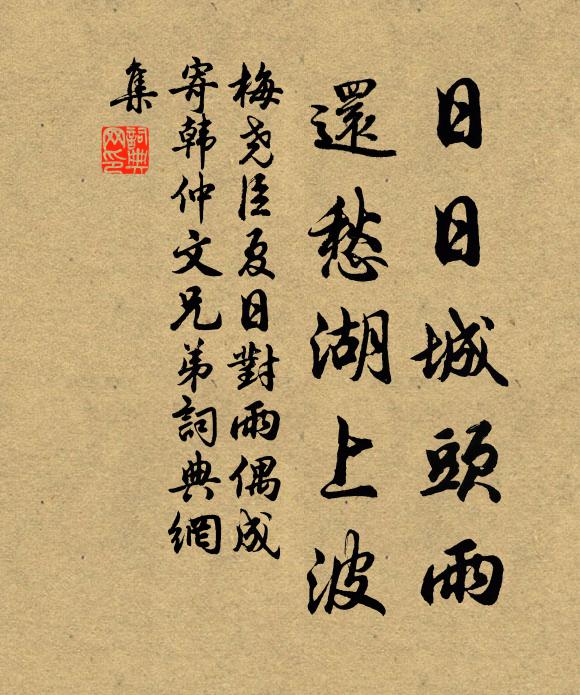 日日城頭雨
還愁湖上波
梅堯臣夏日對雨偶成
寄韩仲文兄弟詞典網
集
詞典
网印